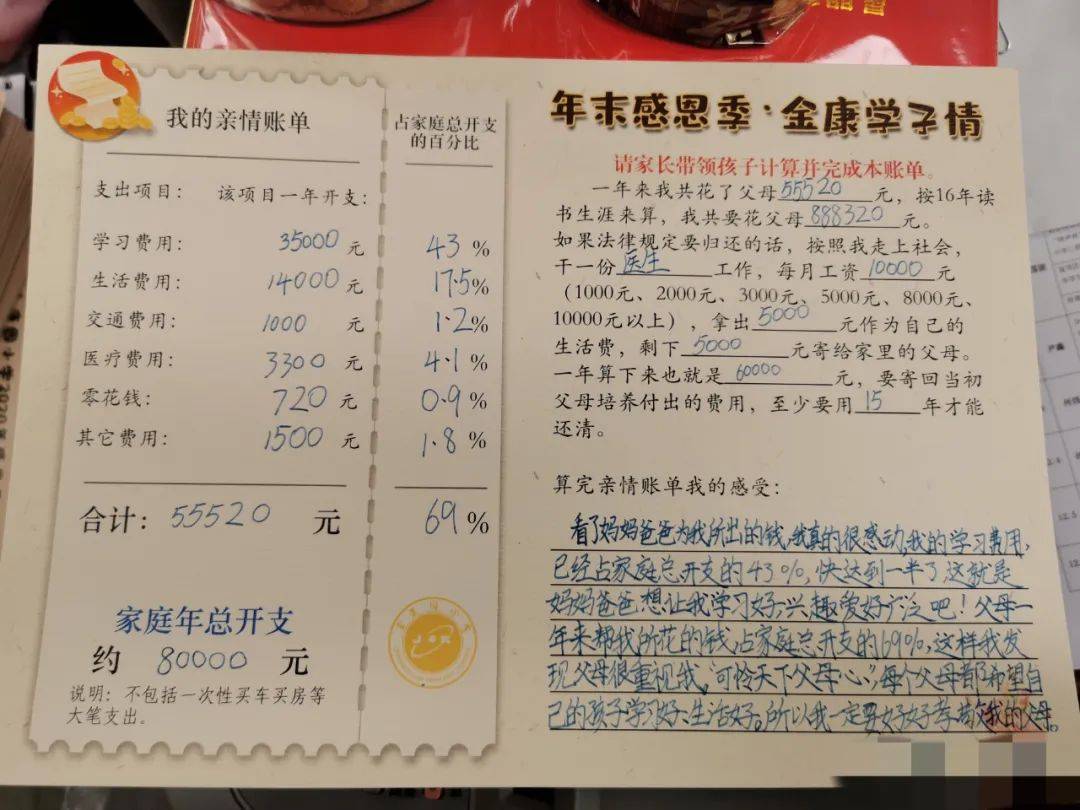 我的亲情账单
占家庭总开支
的百分比
支出项目: 该项目一年开支:
学习费用: 35000 元 43 %
生活费用: 14000 元 17.5%
交通费用: 1000 元 1.2%
医疗费用: 3300 元 4.1 %
零花钱: 720 元 0.9 %
其它费用: 1500 元 1.8 %
合计: 55520 元 69 %
家庭年总开支
约 80000 元
说明:不包括一次性买车买房等
大笔支出。
年末感恩季·金康学子情
请家长带领孩子计算并完成本账单。
一年来我共花了父母55520元,按16年读
书生涯来算,我共要花父母888320元。
如果法律规定要归还的话,按照我走上社会,
干一份医生工作,每月工资10000元
(1000元、2000元、3000元、5000元、8000元、
10000元以上),拿出5000元作为自己的
生活费,剩下5000元寄给家里的父母。
一年算下来也就是60000元,要寄回当初
父母培养付出的费用,至少要用15年才能
还清。
算完亲情账单我的感受:
看了妈妈爸爸为我所出的钱,我真的很感动,我的学习费用,
已经占家庭总开支的43%,快达到一半了,这就是
妈妈爸爸想让我学习好,兴趣爱好广泛吧!父母一
年来帮我所花的钱,占家庭总开支的69%,这样我发
现父母很重视我,“可怜天下父母心”,每个父母都希望自
己的孩子学习好、生活好。所以我一定要好好孝敬我的父母。